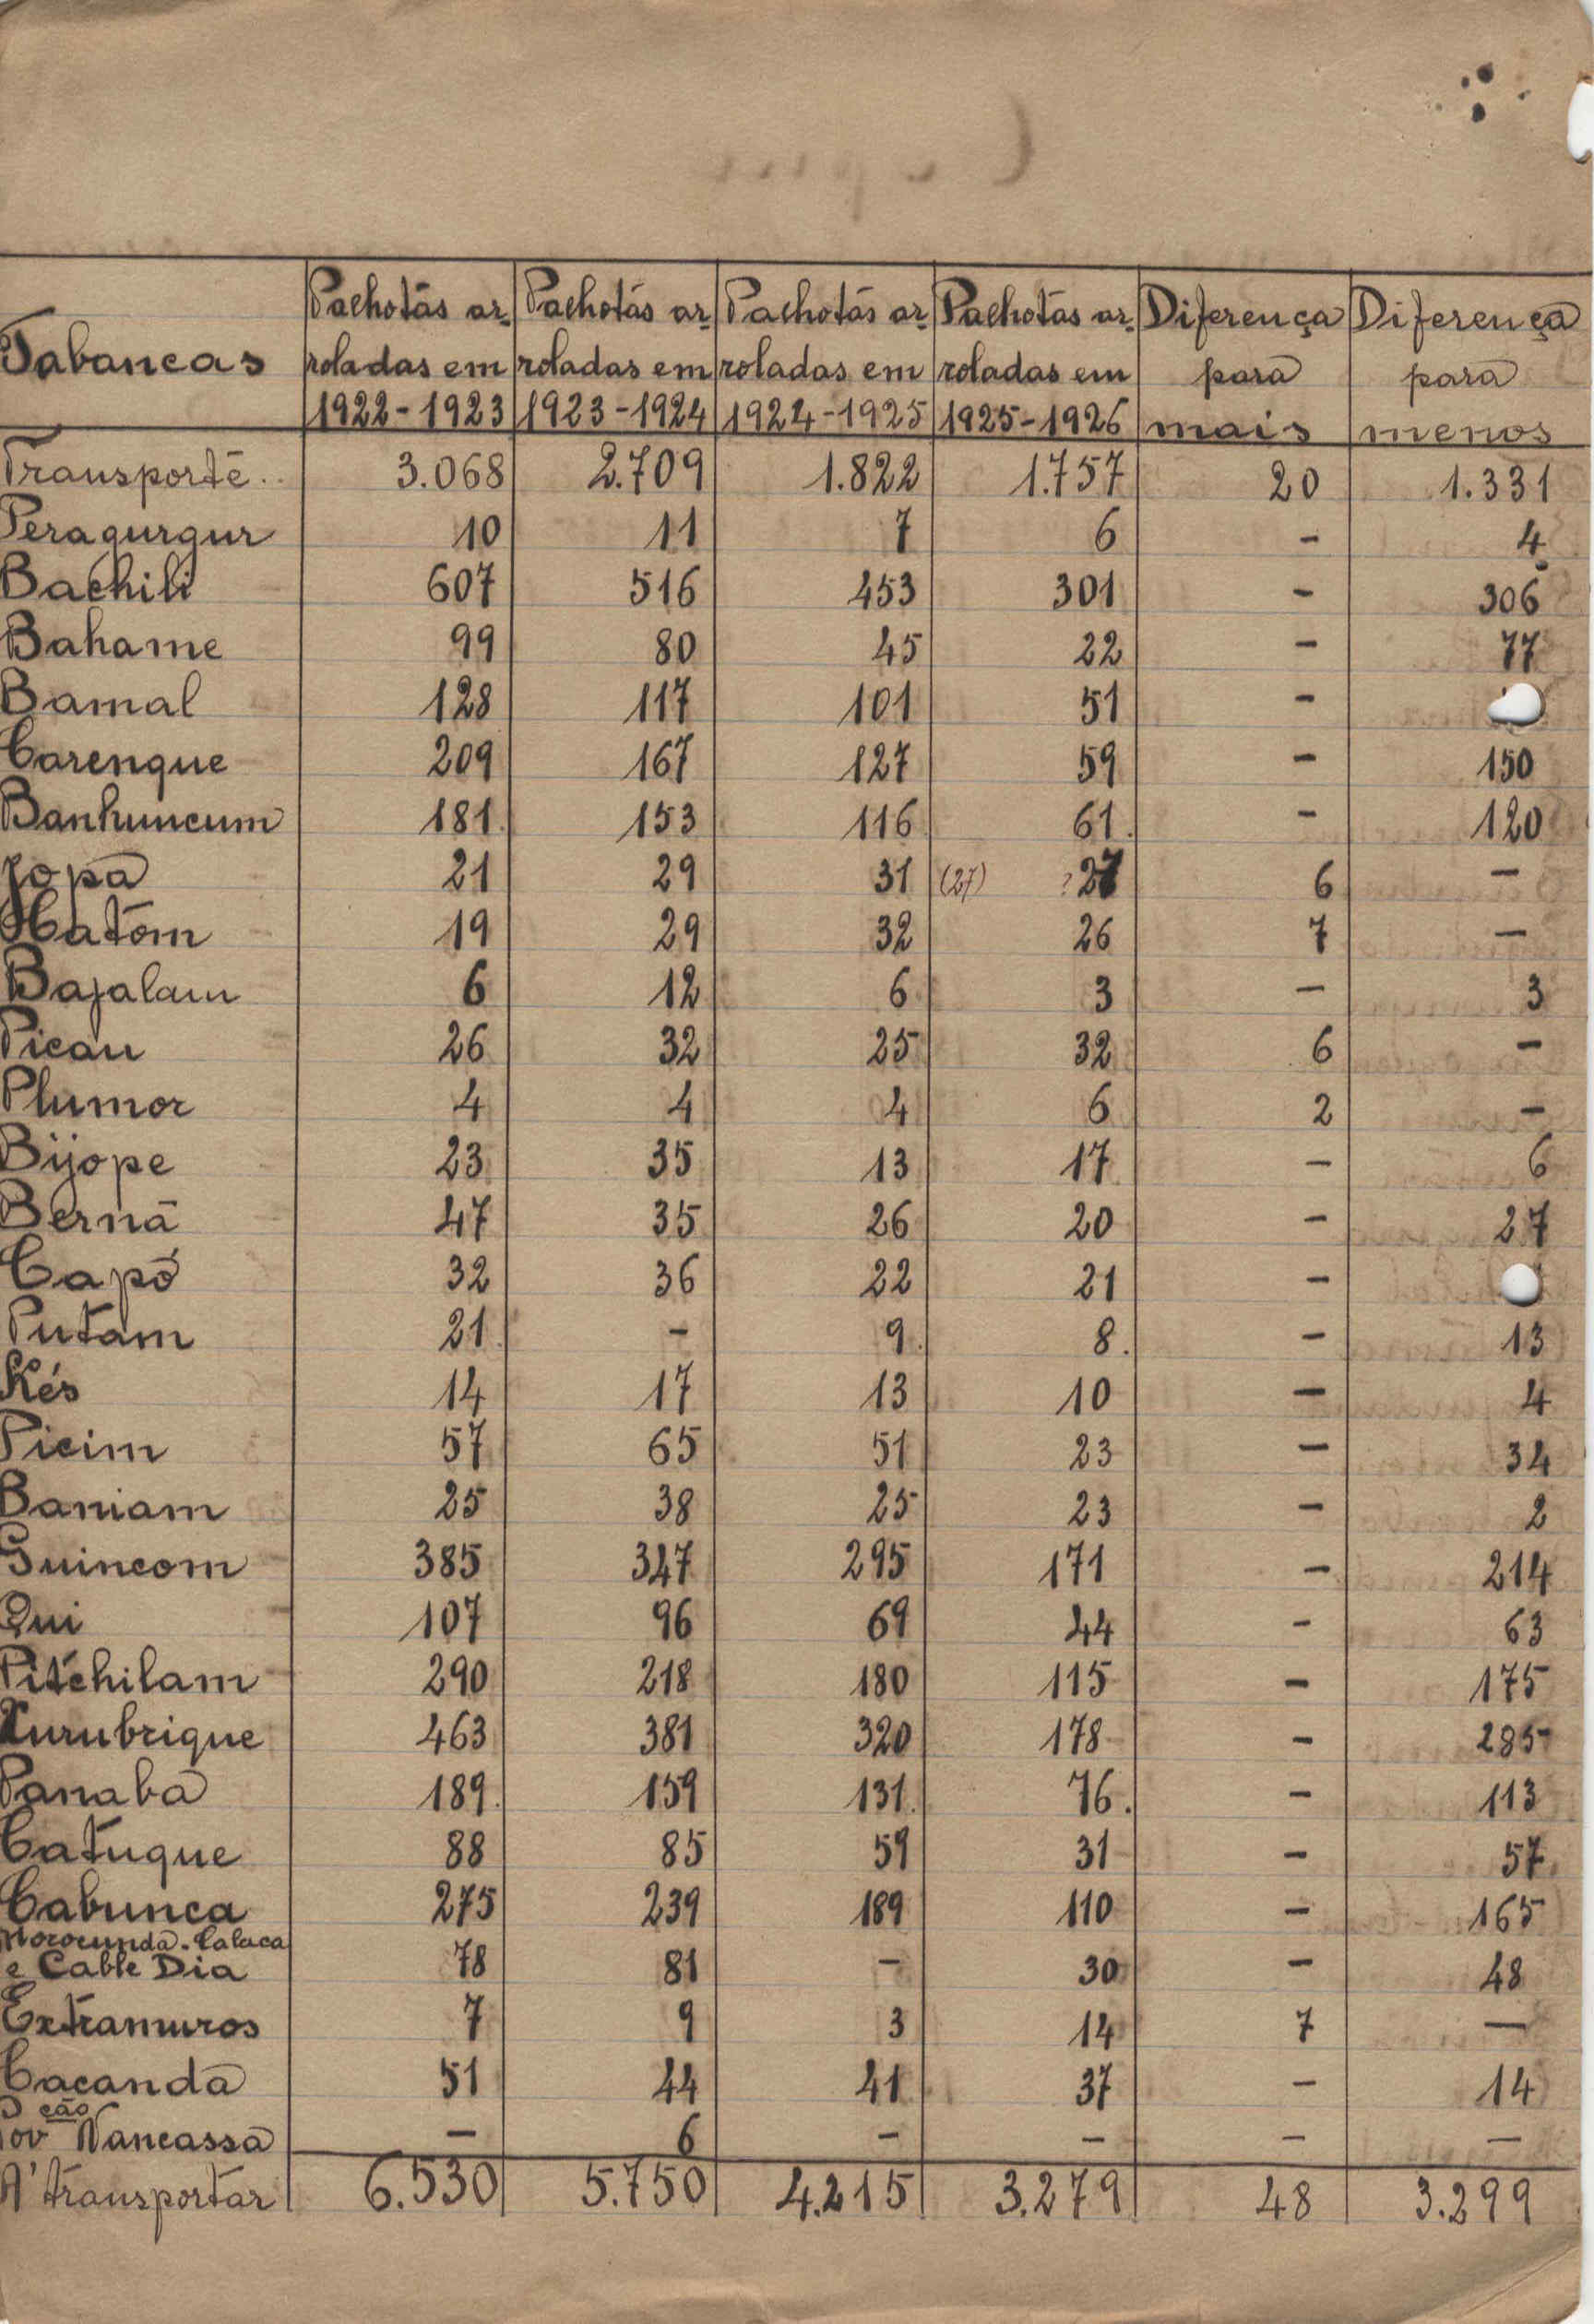 Tabancas Palhotas ar- Palhotas ar- Palhotas ar- Palhotas ar- Diferença Diferença
roladas em roladas em roladas em roladas em para para
1922-1923 1923-1924 1924-1925 1925-1926 mais menos
Transporte.. 3.068 2.709 1.822 1.757 20 1.331
Peragurgur 10 11 7 6 - 4
Bachili 607 516 453 301 - 306
Bahame 99 80 45 22 - 77
Bamal 128 117 101 51 -
Carenque 209 167 127 59 - 150
Banhuncum 181 153 116 61. - 120
Jopá 21 29 31 (27) ?27 6 -
Hatom 19 29 32 26 7 -
Bajalam 6 12 6 3 - 3
Picau 26 32 25 32 6 -
Plumor 4 4 4 6 2 -
Bijope 23 35 13 17 - 6
Berná 47 35 26 20 - 27
Capó 32 36 22 21 -
Putam 21 - 9 8. - 13
Kés 14 17 13 10 - 4
Picim 57 65 51 23 - 34
Baniam 25 38 25 23 - 2
Guincom 385 347 295 171 - 214
Qui 107 96 69 44 - 63
Pitchilam 290 218 180 115 - 175
Xurubrique 463 381 320 178 - 285
Panabá 189 159 131 76. - 113
Catuque 88 85 59 31 - 57
Cabunca 275 239 189 110 - 165
Morocunda. Calaca
e Cable Dia 78 81 - 30 - 48
Extramuros 7 9 3 14 7 -
Cacanda 51 44 41 37 - 14
Povção Nancassa - 6 - - - -
A' transportar 6.530 5.750 4.215 3.279 48 3.299